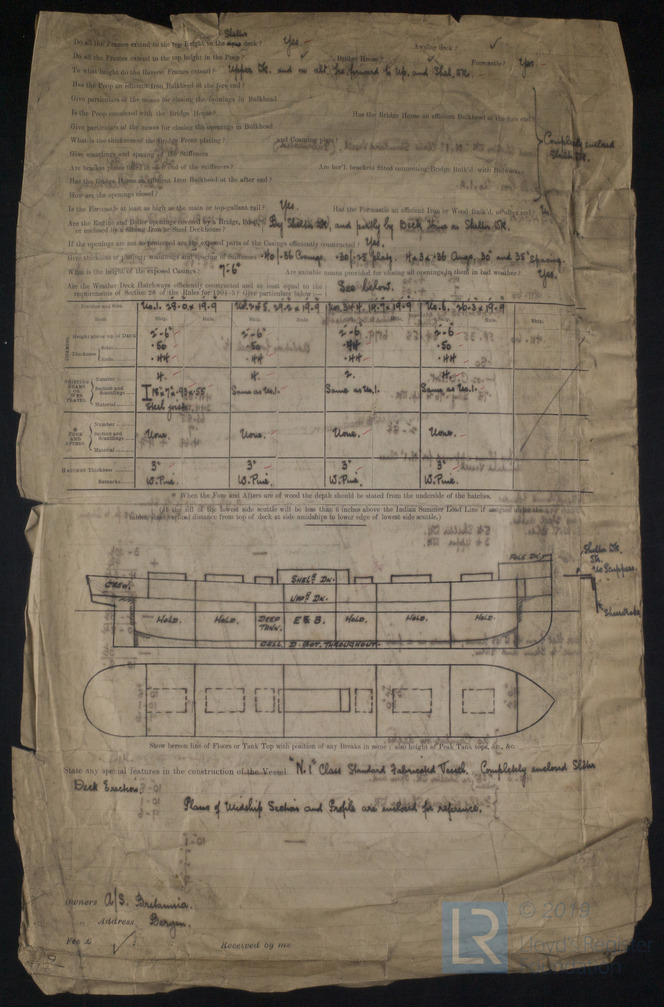 Do all the Frames extend to the top height in the Shelter deck? Yes. Awning deck?
Do all the Frames extend to the top height in the Poop? Bridge House? Forecastle? Yes
To what height do the Reverse Frames extend? Upper Dk. and on alt. frs. forward to Up. and Shel. Dk.
Has the Poop an efficient Iron Bulkhead at the fore end?
Give particulars of the means for closing the openings in Bulkhead
Is the Poop connected with the Bridge House? Has the Bridge House an efficient Bulkhead at the fore end?
Give particulars of the means for closing the openings in Bulkhead
Completely enclosed
Shelter Dk.
What is the thickness of the Bridge Front plating? and Coaming plate?
Give scantlings and spacing of the Stiffeners
Are bracket plates fitted at each end of the stiffeners? Are hor'l. brackets fitted connecting Bridge Bulk'd with Bulwarks?
Has the Bridge House an efficient Iron Bulkhead at the after end?
How are the openings closed?
Is the Forecastle at least as high as the main or top-gallant rail? Yes. Has the Forecastle an efficient Iron or Wood Bulk'd. at after end?
Are the Engine and Boiler openings covered by a Bridge, Poop, By Shelter Dk, and partly by Deck House on Shelter Dk.
or enclosed by a strong Iron or Steel Deckhouse?
If the openings are not so protected are the exposed parts of the Casings efficiently constructed? Yes.
Give thickness of plating; scantlings and spacing of Stiffeners .40/.36 Coamgs. .30/.25 platg. 4 x 3 x .36 Angs. 30" and 35" Spacing.
What is the height of the exposed Casings? 7'-6" Are suitable means provided for closing all openings in them in bad weather? Yes.
Are the Weather Deck Hatchways efficiently constructed and at least equal to the See below.
requirements of Section 28 of the Rules for 1904-5? Give particulars below:—
Position and Size. No. 1. 29.0 x 19.9 No. 2 & 5. 29.2 x 19.9 No. 3 & 4. 19.9 x 19.9 No. 6. 26.3 x 19.9
Ship. Rule. Ship. Rule. Ship. Rule. Ship. Rule. Ship.
Height above top of Deck 2'-6" 2'-6" 2'-6 2'-6
Thickness Sides .50 .50 .44 .50
Ends .44 .44 .44 .44
Number 4. 4. 2. 4.
Section and Scantlings Same as No. 1. Same as No. 1. Same as No. 1.
Material
Number
FORE AND AFTERS. Section and Scantlings None. None. None. None.
Material
HATCHES Thickness 3" 3" 3" 3"
Remarks W. Pine. W. Pine. W. Pine. W. Pine.
* When the Fore and Afters are of wood the depth should be stated from the underside of the hatches.
(If the sill of the lowest side scuttle will be less than 6 inches above the Indian Summer Load Line if assigned under the
Tables, state vertical distance from top of deck at side amidships to lower edge of lowest side scuttle.)
Shelter Dk.
Str.
No Scuppers.
Sheerstrake
CREW. SHELR DK. FOLE DK.
UPPR DK.
HOLD. HOLD. DEEP TANK. E & B. HOLD. HOLD. HOLD.
CELL. D. BOT. THROUGHOUT.
Show hereon line of Floors or Tank Top with position of any Breaks in same; also height of Peak Tank tops, &c., &c.
State any special features in the construction of the Vessel "N.1" Class Standard Fabricated Vessel. Completely enclosed Shltr
Deck Erection.
Plans of Midship Section and Profile are enclosed for reference.
Owners A/S. Britannia.
Address Bergen.
Fee £ Received by me
LR © 2019
Lloyd's Register
Foundation